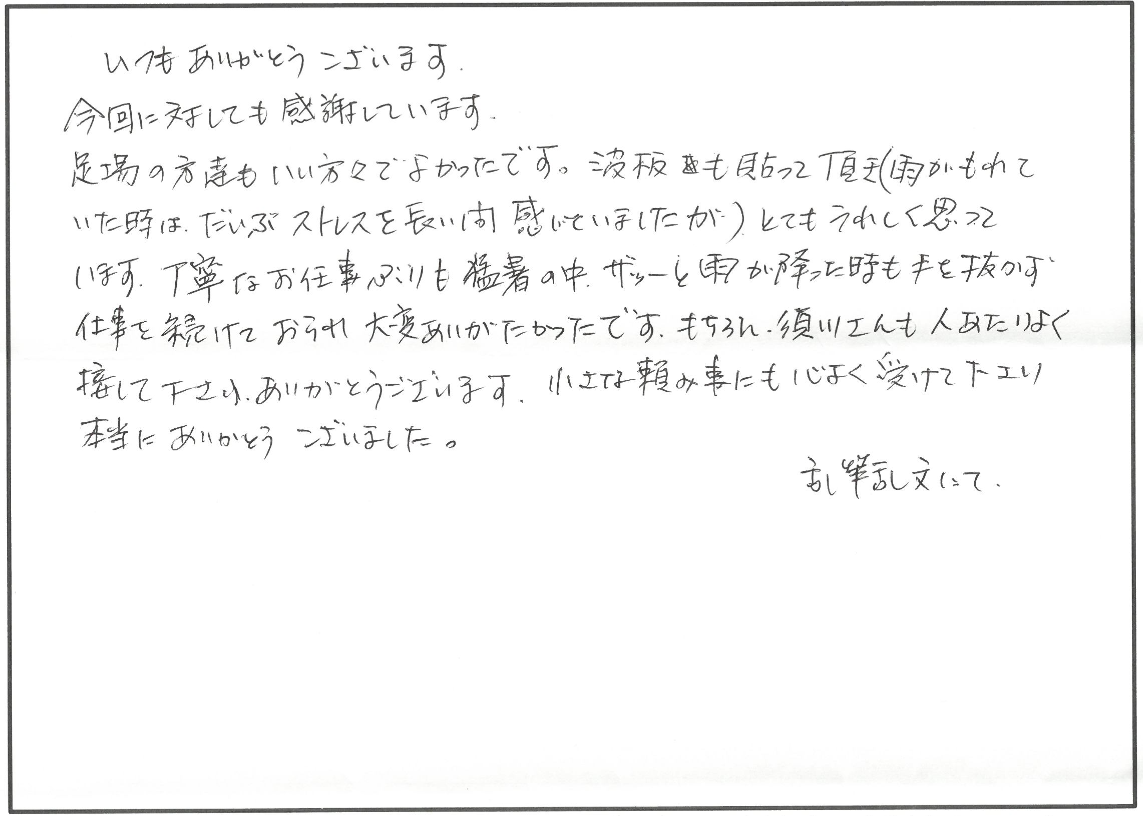 いつもありがとうございます.
今回に対しても感謝しています.
足場の方達もいい方々でよかったです。波板も貼って頂き(雨がもれて
いた時は、だいぶストレスを長い間感じていましたが)とてもうれしく思って
います. 丁寧なお仕事ぶりも猛暑の中、ザッーと雨が降った時も手を抜かず
仕事を続けておられ大変ありがたかったです. もちろん、須川さんも人あたりよく
接して下さり、ありがとうございます. 小さな頼み事にも心よく受けて下さり
本当にありがとうございました。
乱筆乱文にて.